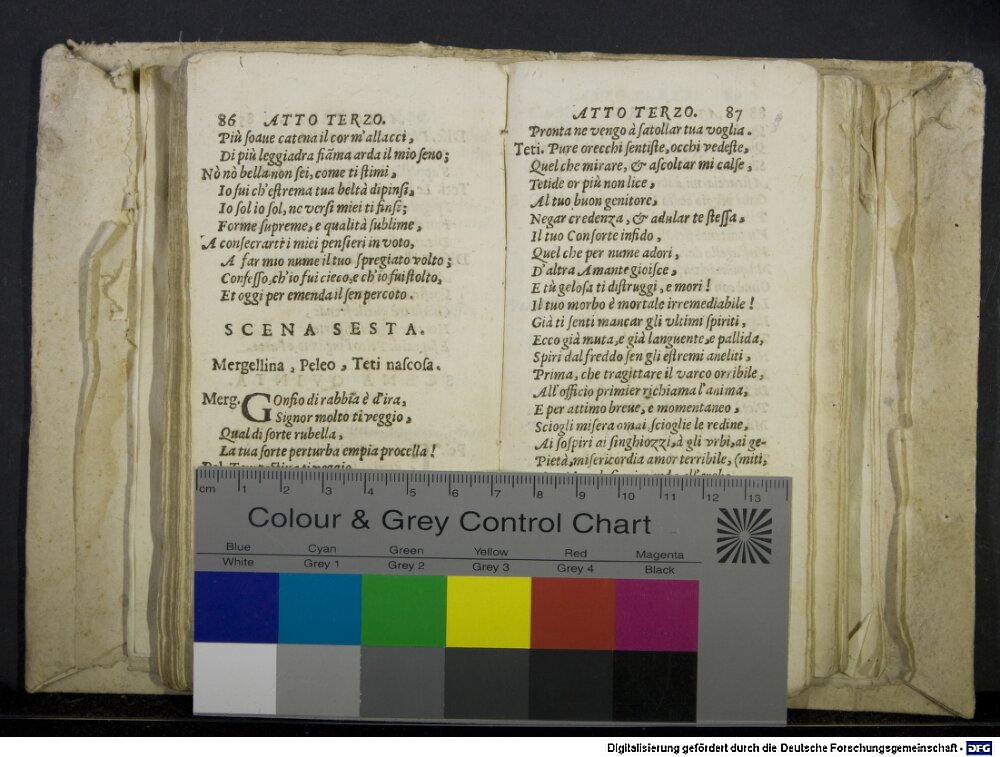 86 ATTO TERZO.
Più soaue catena il cor m'allacci,
Di più leggiadra fiãma arda il mio seno;
Nò nò bella non sei, come ti stimi,
Io fui ch'estrema tua beltà dipinsi,
Io sol io sol, ne versi miei ti finsi;
Forme supreme, e qualità sublime,
A consecrarti i miei pensieri in voto,
A far mio nume il tuo spregiato volto;
Confesso, ch'io fui cieco, e ch'io fui stolto,
Et oggi per emenda il sen percoto.
SCENA SESTA.
Mergellina, Peleo, Teti nascosa.
Merg. GOnfio di rabbia è d'ira,
Signor molto ti veggio,
Qual di sorte rubella,
La tua sorte perturba empia procella!
ATTO TERZO. 87
Pronta ne vengo à satollar tua voglia.
Teti. Pure orecchi sentiste, occhi vedeste,
Quel che mirare, & ascoltar mi calse,
Tetide or più non lice,
Al tuo buon genitore,
Negar credenza, & adular te stessa,
Il tuo Consorte infido,
Quel che per nume adori,
D'altra Amante gioisce,
E tù gelosa ti distruggi, e mori!
Il tuo morbo è mortale irremediabile!
Già ti senti mancar gli vltimi spiriti,
Ecco già muta, e già languente, e pallida,
Spiri dal freddo sen gli estremi aneliti,
Prima, che tragittare il varco orribile,
All'officio primier richiama l'anima,
E per attimo breue, e momentaneo,
Sciogli misera omai scioglie le redine,
Ai sospiri ai singhiozzi, à gli vrbi, ai ge-
Pietà, misericordia amor terribile, (miti,
cm 1 2 3 4 5 6 7 8 9 10 11 12 13
Colour & Grey Control Chart
Blue Cyan Green Yellow Red Magenta
White Grey 1 Grey 2 Grey 3 Grey 4 Black
Digitalisierung gefördert durch die Deutsche Forschungsgemeinschaft - DFG